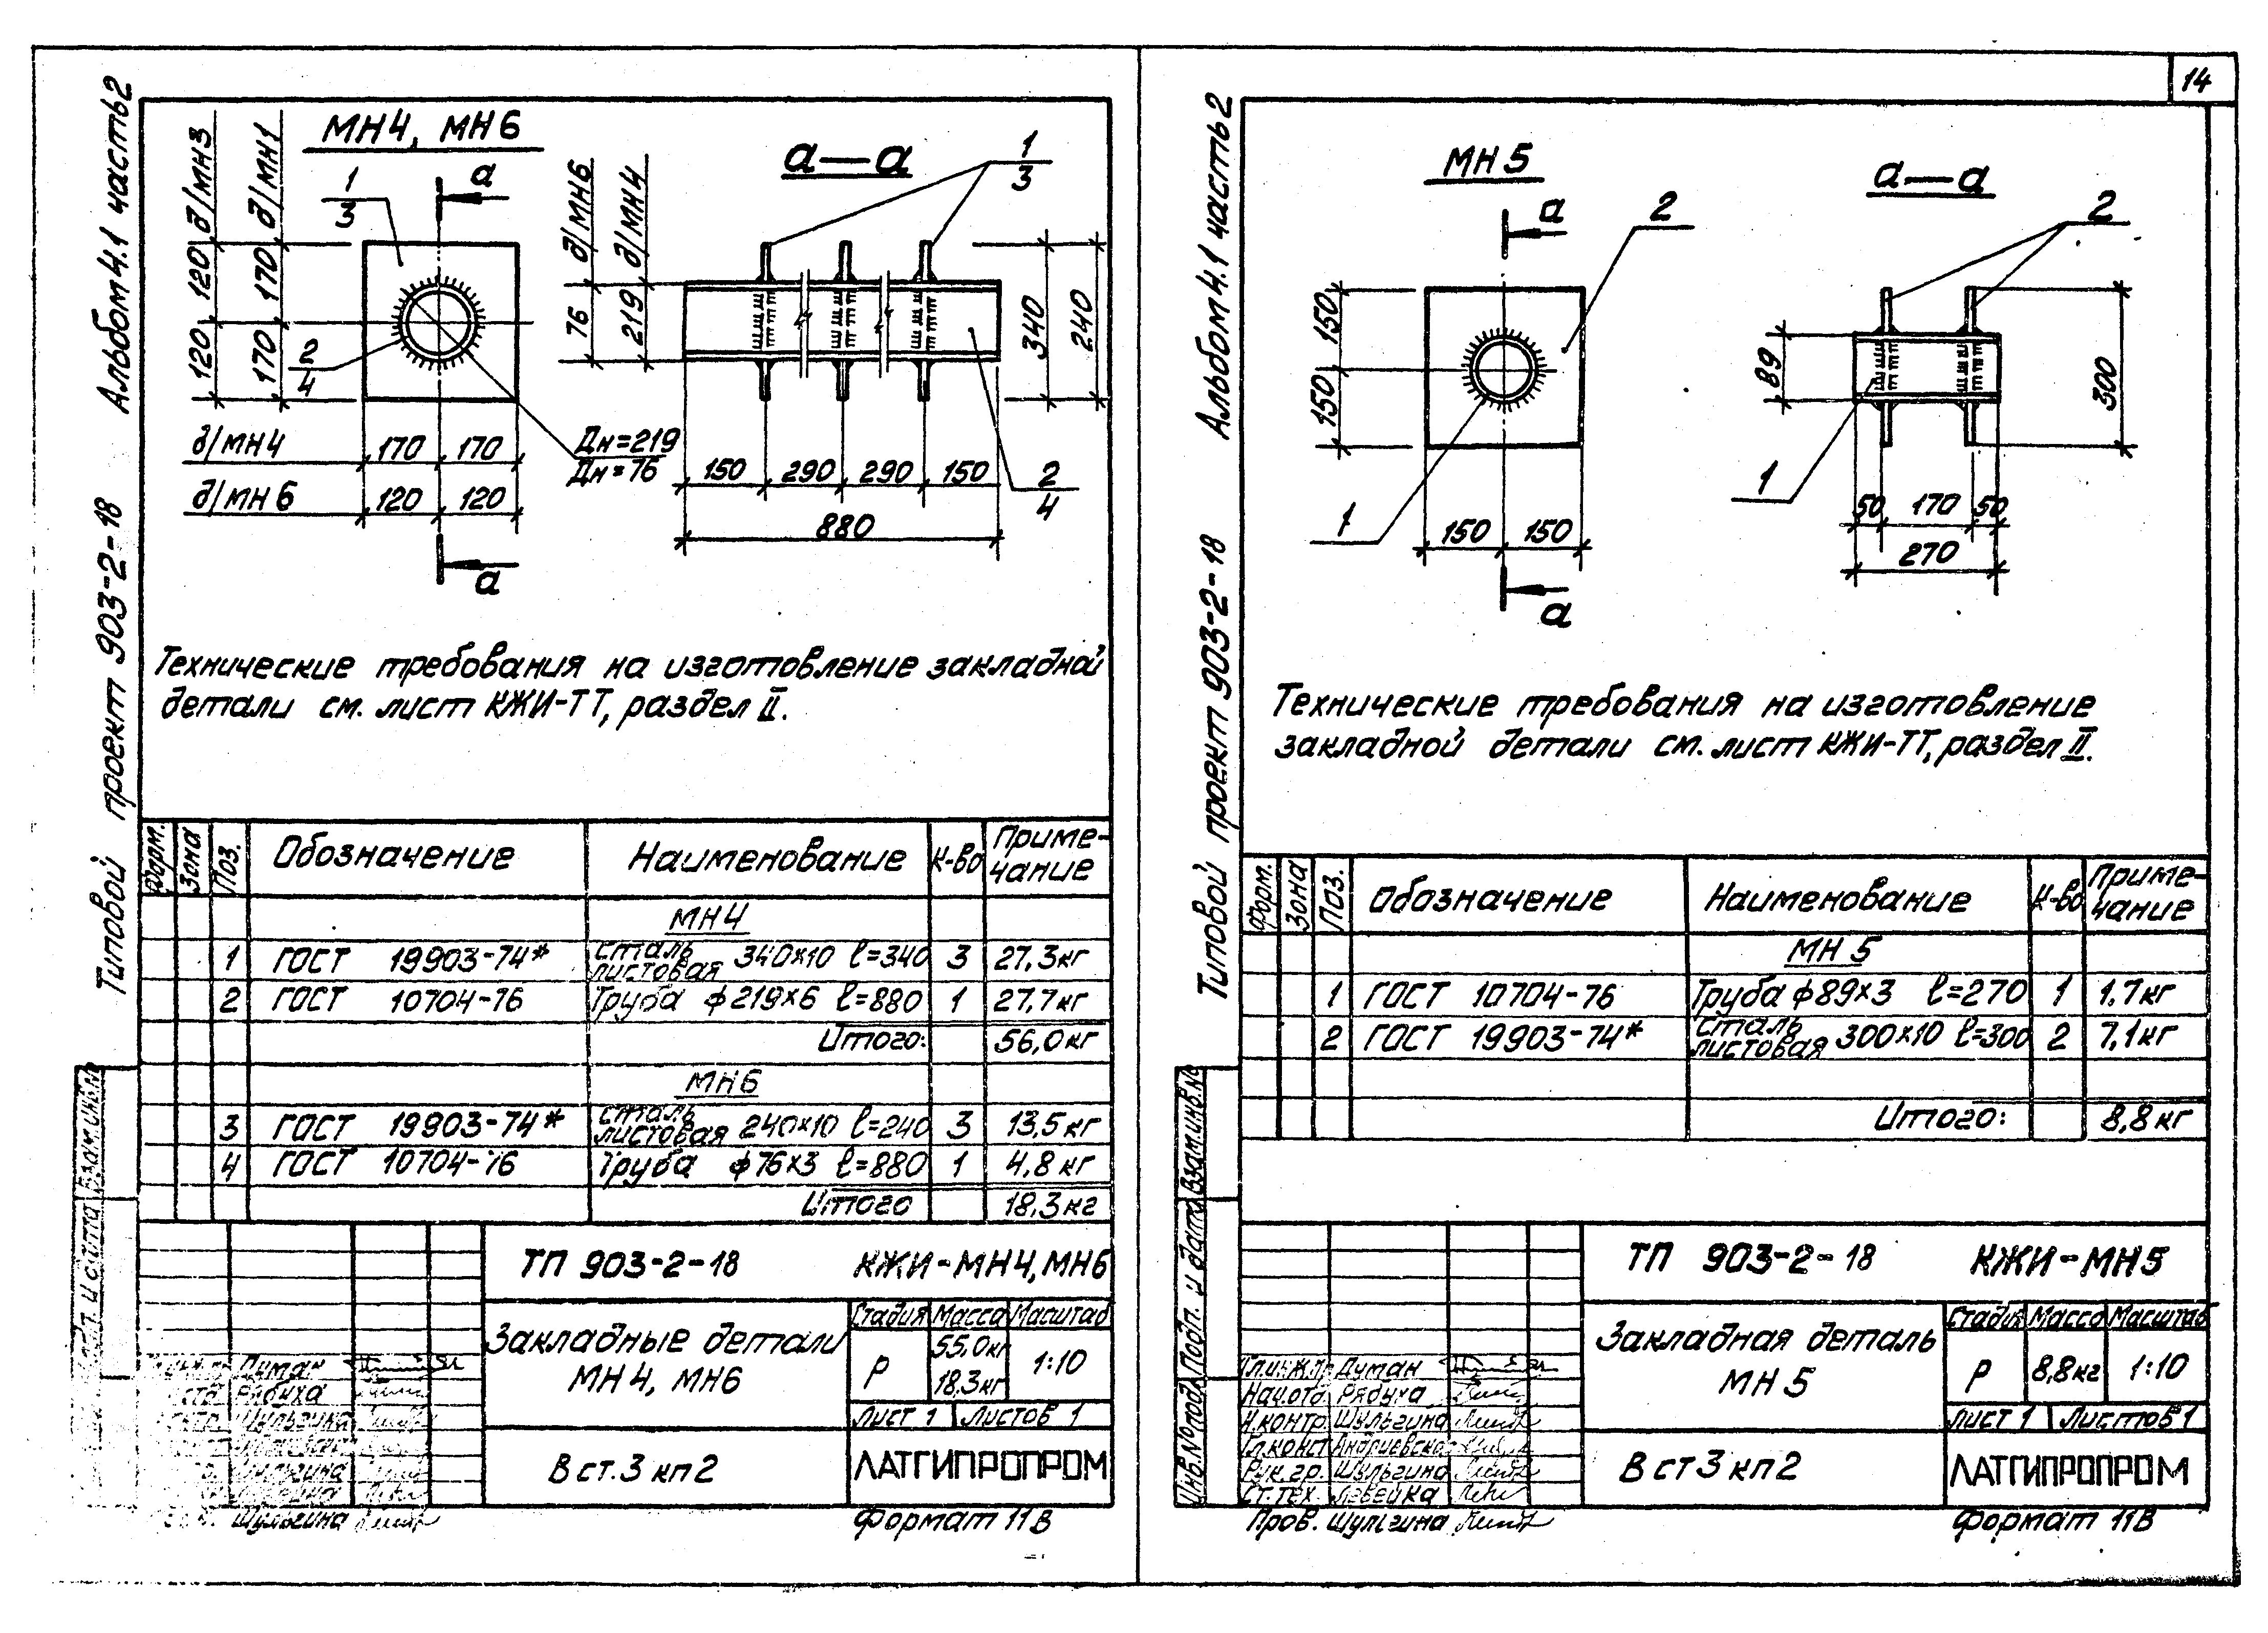 14
Альбом 4.1 часть 2
Типовой проект 903-2-18
МН4, МН6
д/МН3
д/МН1
120 120
170 170
1
3
2
4
а
а
д/МН4 170 170
д/МН6 120 120
Дн=219
Дн=76
а—а
д/МН6
д/МН4
76
219
1
3
340
240
2
4
150 290 290 150
880
Технические требования на изготовление закладной
детали см. лист КЖИ-ТТ, раздел II.
Форм. Зона Поз. Обозначение Наименование К-во Приме-
чание
МН4
1 ГОСТ 19903-74* сталь листовая 340х10 ℓ=340 3 27,3кг
2 ГОСТ 10704-76 Труба ф219х6 ℓ=880 1 27,7кг
Итого: 56,0кг
МН6
3 ГОСТ 19903-74* сталь листовая 240х10 ℓ=240 3 13,5кг
4 ГОСТ 10704-76 Труба ф76х3 ℓ=880 1 4,8кг
Итого 18,3кг
ТП 903-2-18 КЖИ-МН4,МН6
Закладные детали
МН4, МН6
Стадия Масса Масштаб
Р 55,0кг 1:10
18,3кг
Лист 1 Листов 1
В ст.3 кп2
ЛАТГИПРОПРОМ
Взам.инв.№
Думан
Рябуха
Шульгина
Шульгина
Формат 11В
Альбом 4.1 часть 2
Типовой проект 903-2-18
МН5
а
а
2
1
150 150
150 150
а—а
2
1
89
300
50 170 50
270
Технические требования на изготовление
закладной детали см. лист КЖИ-ТТ, раздел II.
Форм. Зона Поз. Обозначение Наименование К-во Приме-
чание
МН5
1 ГОСТ 10704-76 Труба ф89х3 ℓ=270 1 1,7кг
2 ГОСТ 19903-74* сталь листовая 300х10 ℓ=300 2 7,1кг
Итого: 8,8кг
ТП 903-2-18 КЖИ-МН5
Закладная деталь
МН5
Стадия Масса Масштаб
Р 8,8кг 1:10
Лист 1 Листов 1
В ст3 кп2
ЛАТГИПРОПРОМ
Инв.№подл. Подп. и дата Взам.инв.№
Гл.инж.пр. Думан
Нач.отд. Рябуха
Н.контр. Шульгина
Гл.конст. Андриевская
Рук.гр. Шульгина
Ст.тех. Левейка
Пров. Шульгина
Формат 11В